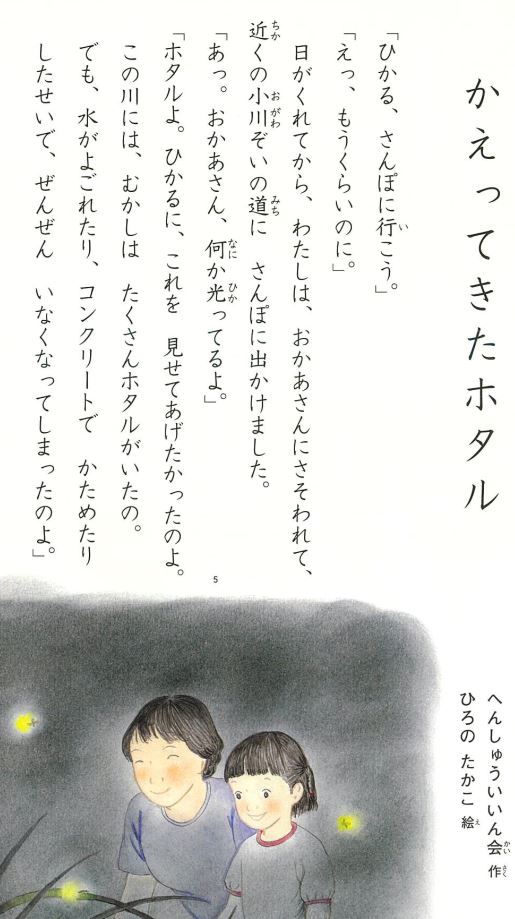 かえってきたホタル
へんしゅういいん会 作
ひろの たかこ 絵
「ひかる、さんぽに行こう。」
「えっ、もうくらいのに。」
日がくれてから、わたしは、おかあさんにさそわれて、
近くの小川ぞいの道に さんぽに出かけました。
「あっ。おかあさん、何か光ってるよ。」
「ホタルよ。ひかるに、これを 見せてあげたかったのよ。
この川には、むかしは たくさんホタルがいたの。
でも、水がよごれたり、コンクリートで かためたり
したせいで、ぜんぜん いなくなってしまったのよ。」
5